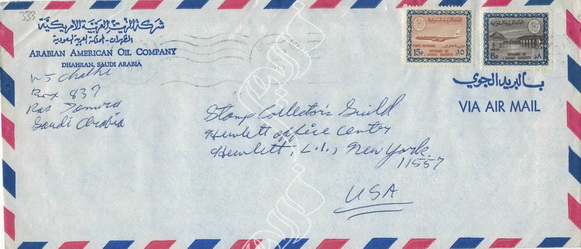 333
شركة الزيت العربية الأمريكية
الظهران - المملكة العربية السعودية
ARABIAN AMERICAN OIL COMPANY
DHAHRAN, SAUDI ARABIA
Box 837
Ras Tanura
Saudi Arabia
15P
١٥
8P
٨
بالبريد الجوي
VIA AIR MAIL
Stamp Collector's Guild
Hewlett Office Center
Hewlett, L.I., New York
11557
USA